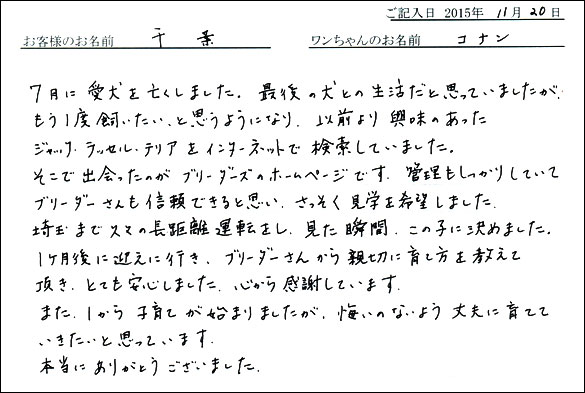 ご記入日 2015年 11月 20日
お客様のお名前 千葉 ワンちゃんのお名前 コナン
7月に愛犬を亡くしました。最後の犬との生活だと思っていましたが、
もう1度飼いたい、と思うようになり、以前より興味のあった
ジャック・ラッセル・テリアをインターネットで検索していました。
そこで出会ったのがブリーダーズのホームページです。管理もしっかりしていて
ブリーダーさんも信頼できると思い、さっそく見学を希望しました。
埼玉まで久々の長距離運転をし、見た瞬間、この子に決めました。
1ヶ月後に迎えに行き、ブリーダーさんから親切に育て方を教えて
頂き、とても安心しました。心から感謝しています。
また、1から子育てが始まりましたが、悔いのないよう丈夫に育てて
いきたいと思っています。
本当にありがとうございました。